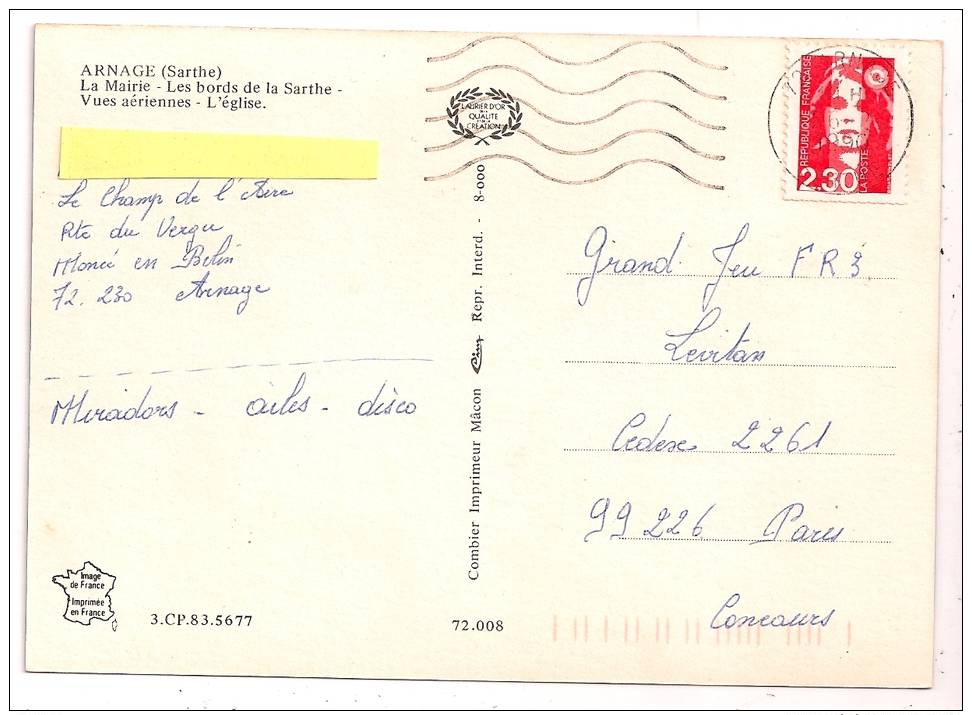 ARNAGE (Sarthe)
La Mairie - Les bords de la Sarthe -
Vues aériennes - L'église.
Le Champ de l'Aere
Rte du Vergu
Moncé en Belin
72.230 Arnage
Miradors - ailes - disco
Image
de France
Imprimée
en France
3.CP.83.5677
LAURIER D'OR
DE LA
QUALITÉ
ET DE LA
CRÉATION
Combier Imprimeur Mâcon Cim Repr. Interd. - 8-000
72.008
RÉPUBLIQUE FRANÇAISE
2,30
LA POSTE
1990
Grand Jeu FR3
Levitan
Cedex 2261
99226 Paris
Concours